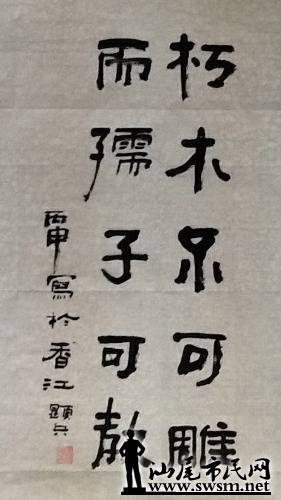 朽木不可雕
而孺子可教
丙申寫於香江
汕尾市民网
www.swsm.net